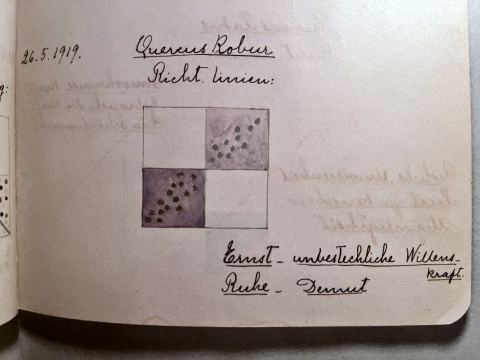 26.5.1919.
Quercus Robur
Richt. linien:
Ernst - unbestechliche Willens-
kraft.
Ruhe - Demut